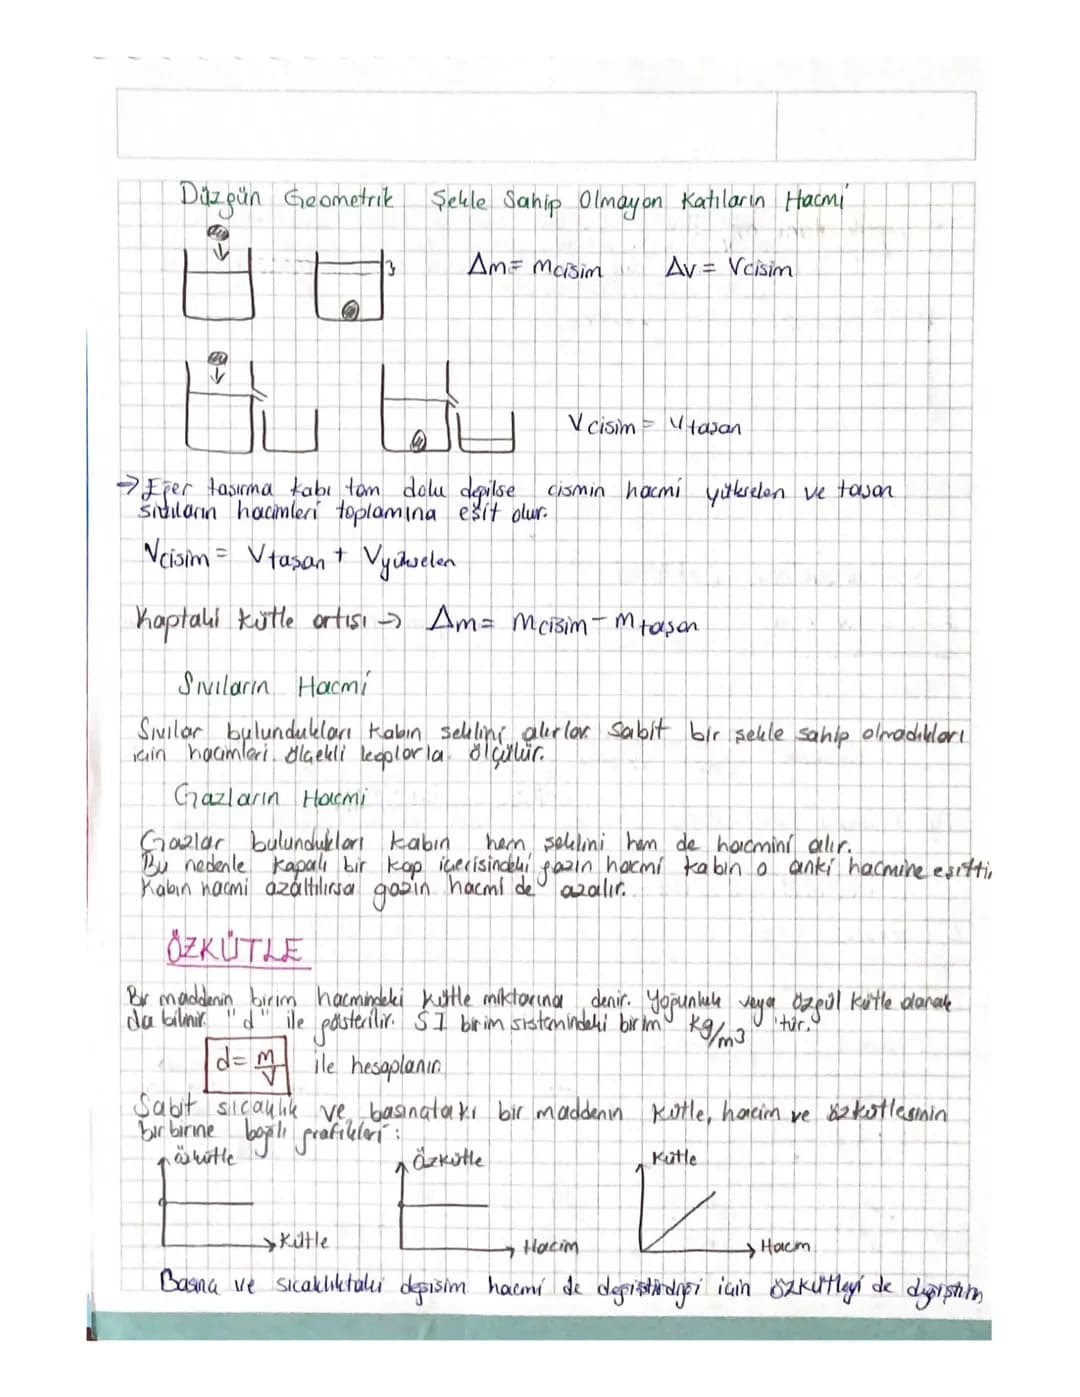 Düzgün Geometrik Şekle Sahip Olmayan Katıların Hacmi
Δm = mcisim ΔV = Vcisim
Vcisim = Vtaşan
→ Eğer taşırma kabı tam dolu değilse cismin hacmi yükselen ve taşan
sıvıların hacimleri toplamına eşit olur.
Vcisim = Vtaşan + Vyükselen
Kaptaki kütle artışı → Δm = mcisim - mtaşan
Sıvıların Hacmi
Sıvılar bulundukları kabın şeklini alırlar. Sabit bir şekle sahip olmadıkları
için hacimleri ölçekli kaplarla ölçülür.
Gazların Hacmi
Gazlar bulundukları kabın hem şeklini hem de hacmini alır.
Bu nedenle kapalı bir kap içerisindeki gazın hacmi kabın o anki hacmine eşitti,
Kabın hacmi azaltılırsa gazın hacmi de azalır.
ÖZKÜTLE
Bir maddenin birim hacmindeki kütle miktarına denir. Yoğunluk veya özgül kütle olarak
da bilinir. "d" ile gösterilir. SI birim sistemindeki birim kg/m3 'tür.
d = m/V ile hesaplanır.
Sabit sıcaklık ve basınçtaki bir maddenin kütle, hacim ve özkütlesinin
birbirine bağlı grafikleri :
özkütle Özkütle Kütle
Kütle Hacim Hacim
Basınç ve sıcaklıktaki değişim hacmi de değiştirdiği için özkütleyi de değiştirir,